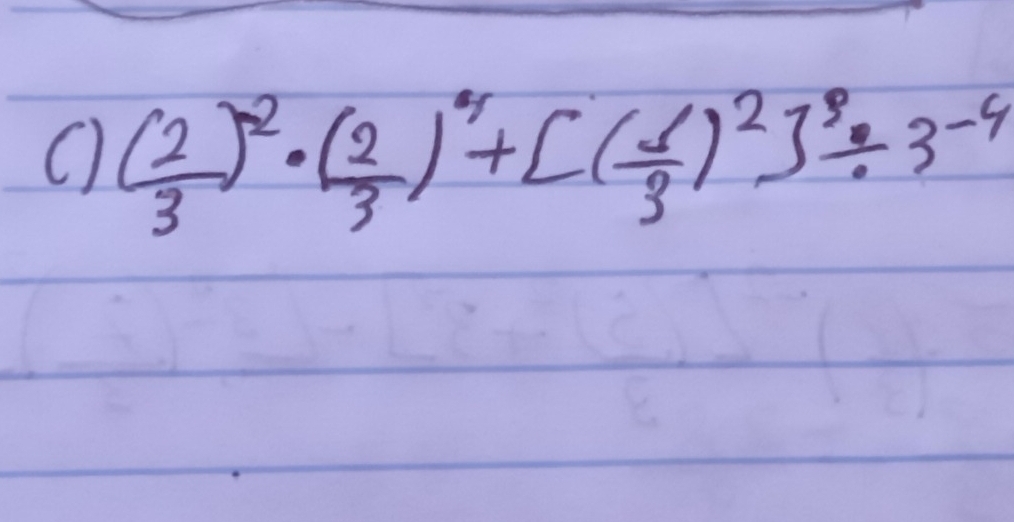 C) (2/3)^-2 · (2/3)^4 + [(1/3)^2]^3 ÷ 3^-4